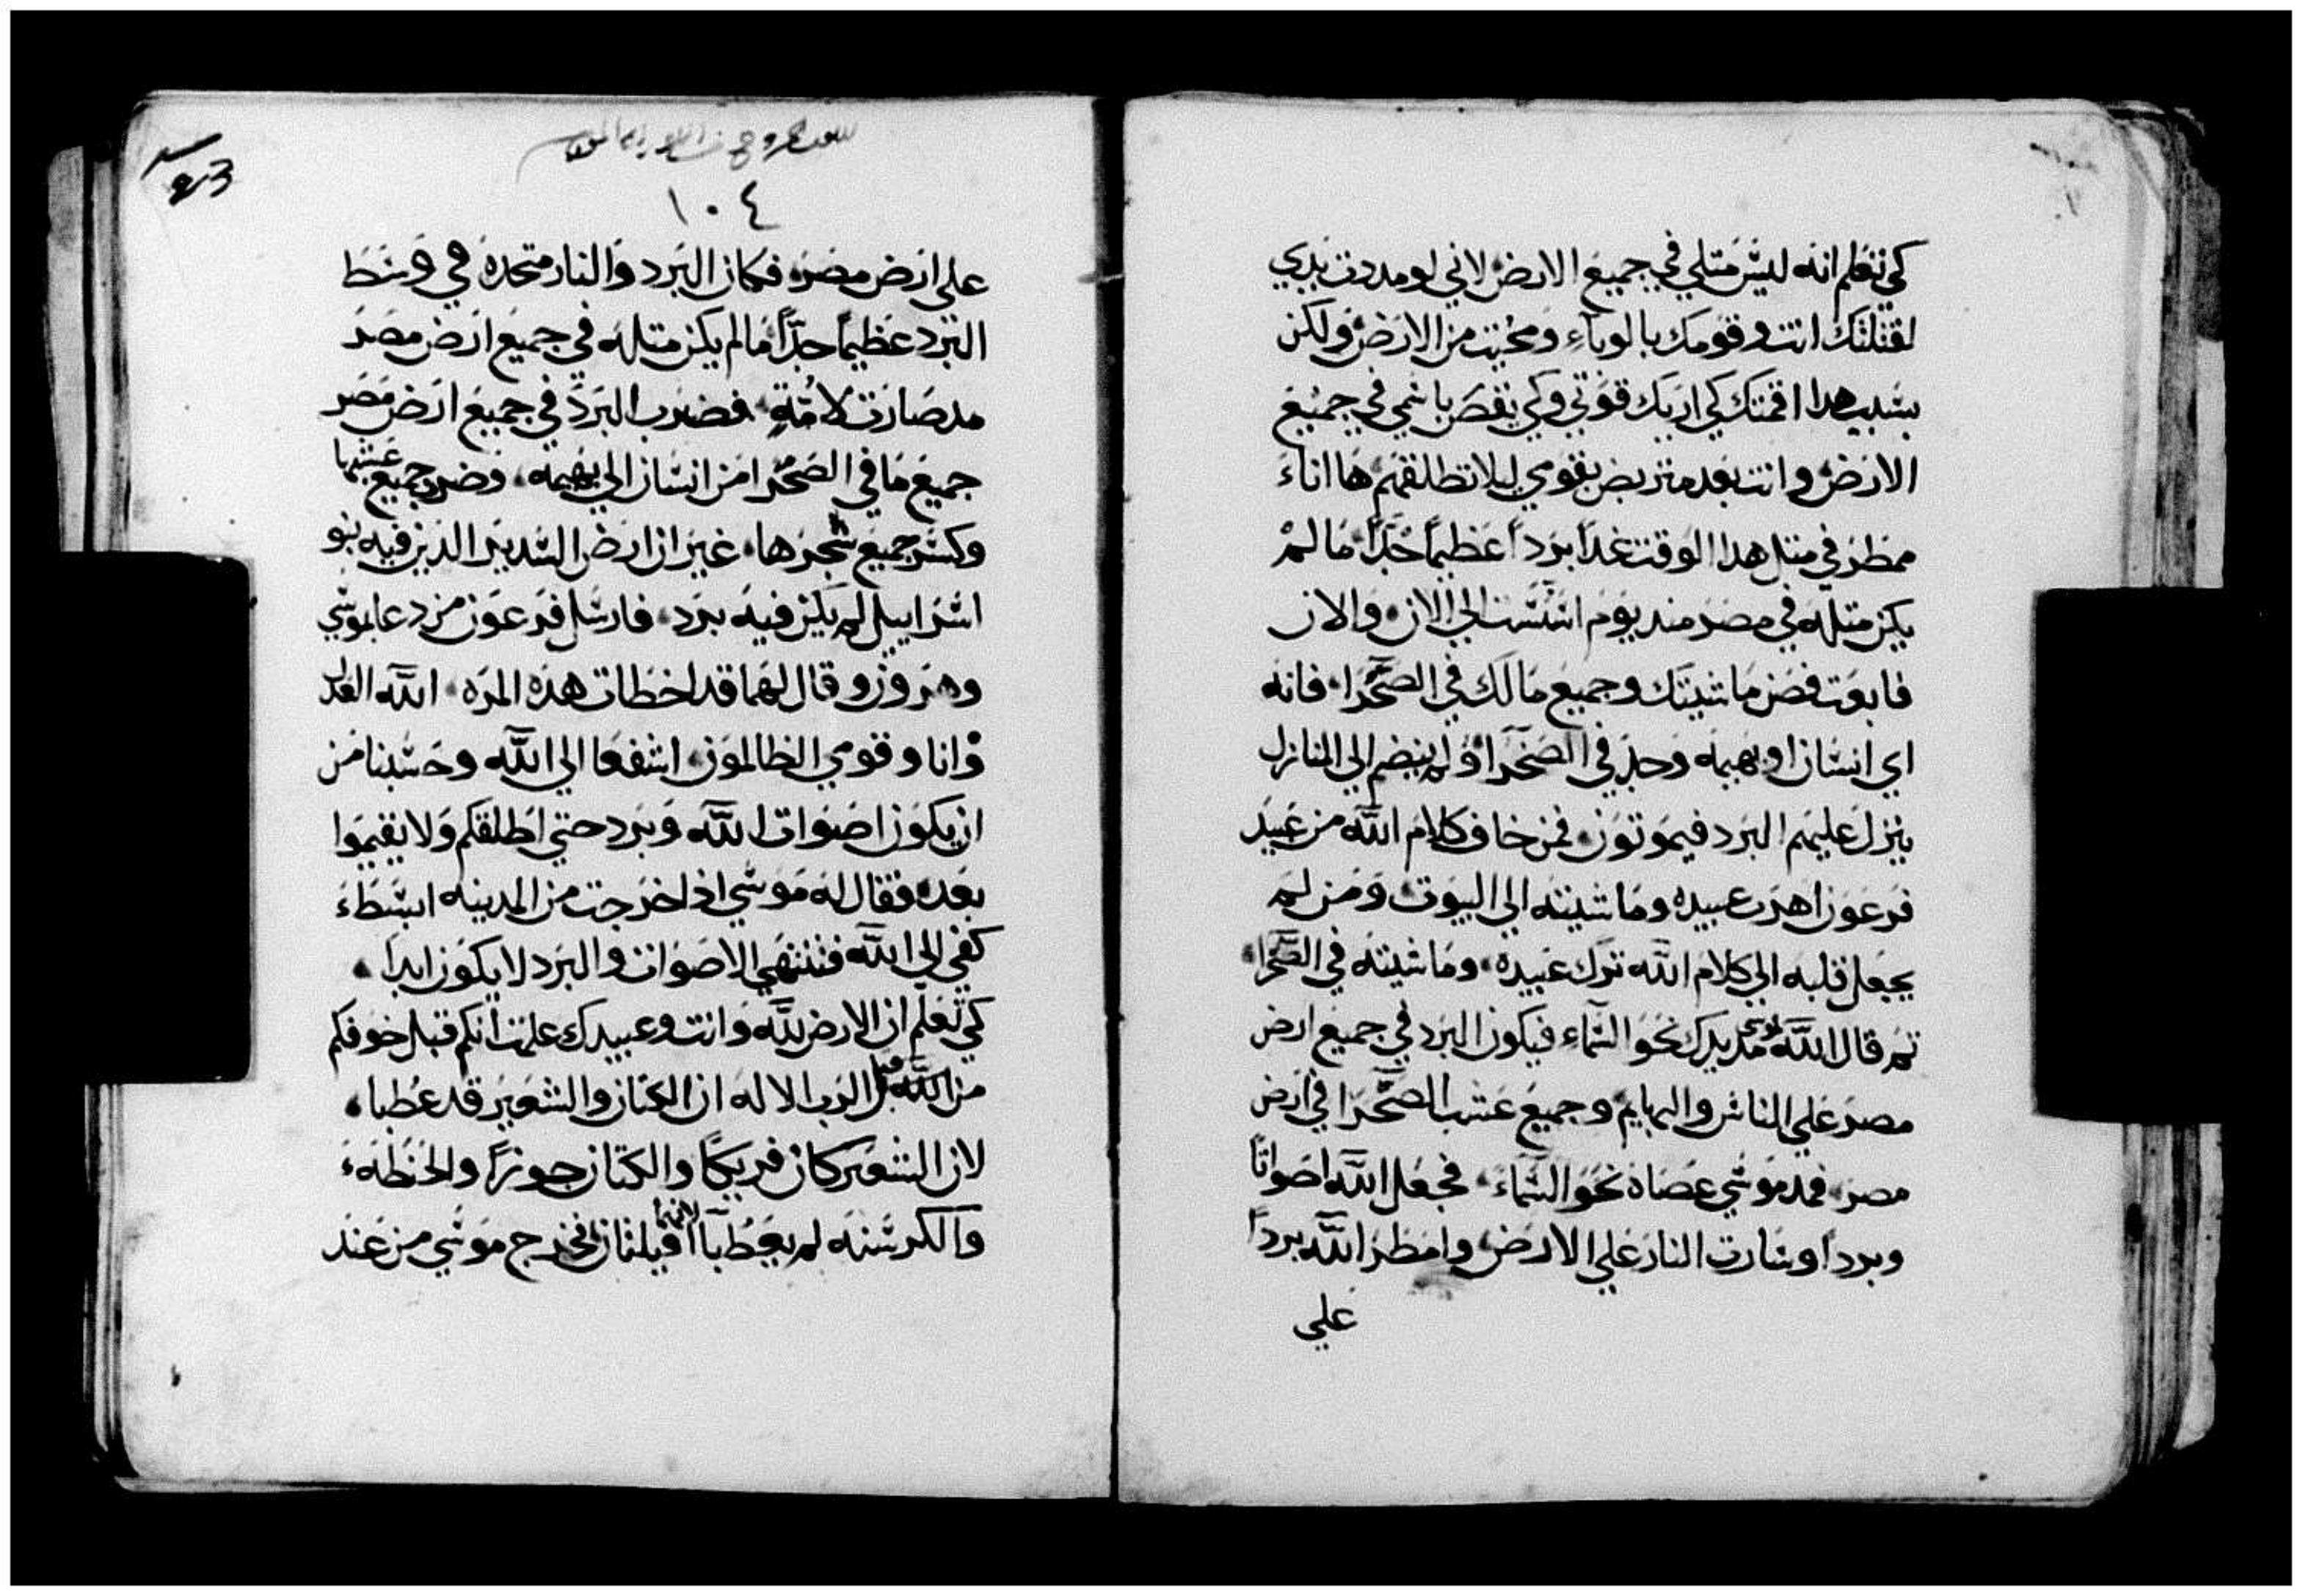 كي تعلم انه ليس متلي في جميع الارض لاني لو مددت يدي
لقتلتك انت وقومك بالوباء ومحيت من الارض ولكن
بسبب هدا اقمتك كي اريك قوتي وكي يقص باسمي في جميع
الارض وانت بعد متربض بقومي ليلا تطلقهم ها اناء
ممطر في متل هدا الوقت غدا بردا عظيما جدا ما لم
يكن متله في مصر مند يوم اسست الي الان والان
فابعت فصن ماشيتك وجميع مالك في الصحرا فانه
اي انسان او بهيمه وجد في الصحرا ولم ينضم الي المنازل
ينزل عليهم البرد فيموتون فمن خاف كلام الله من عبيد
فرعون اهرب عبيده وماشيته الي البيوت ومن لم
يجعل قلبه الي كلام الله ترك عبيده وماشيته في الصحرا
تم قال الله لموسي مد يدك نحو السماء فيكون البرد في جميع ارض
مصر علي الناس والبهايم وجميع عشب الصحرا في ارض
مصر فمد موسي عصاه نحو السماء فجعل الله اصواتا
وبردا وسارت النار علي الارض وامطر الله بردا
علي
١٠٤
علي ارض مصر فكان البرد والنار متحده في وسط
البرد عظيما جدا ما لم يكن متله في جميع ارض مصر
مد صارت لامة فضرب البرد في جميع ارض مصر
جميع ما في الصحرا من انسان الي بهيمه وضرب جميع عشبها
وكسر جميع شجرها غير ان ارض السدير الدين فيه بنو
اسراييل لم يكن فيه برد فارسل فرعون من دعا موسي
وهرون وقال لهما قد اخطات هده المره الله العدل
وانا وقومي الظالمون اشفعا الي الله وحسبنا من
ان يكون اصوات الله وبرد حتي اطلقكم ولا يقيموا
بعده فقال له موسي ادا خرجت من المدينه ابسط
كفي الي الله فتنتهي الاصوات والبرد لا يكون ابدا
كي تعلم ان الارض لله وانت وعبيدك علمت انكم قبل خوفكم
من الله قبل الرب الاله ان الكتان والشعير قد عطبا
لان الشعير كان فريكا والكتان جوزا والحنطه
والكرسنه لم يعطبا لانهما افيلتان فخرج موسي من عند